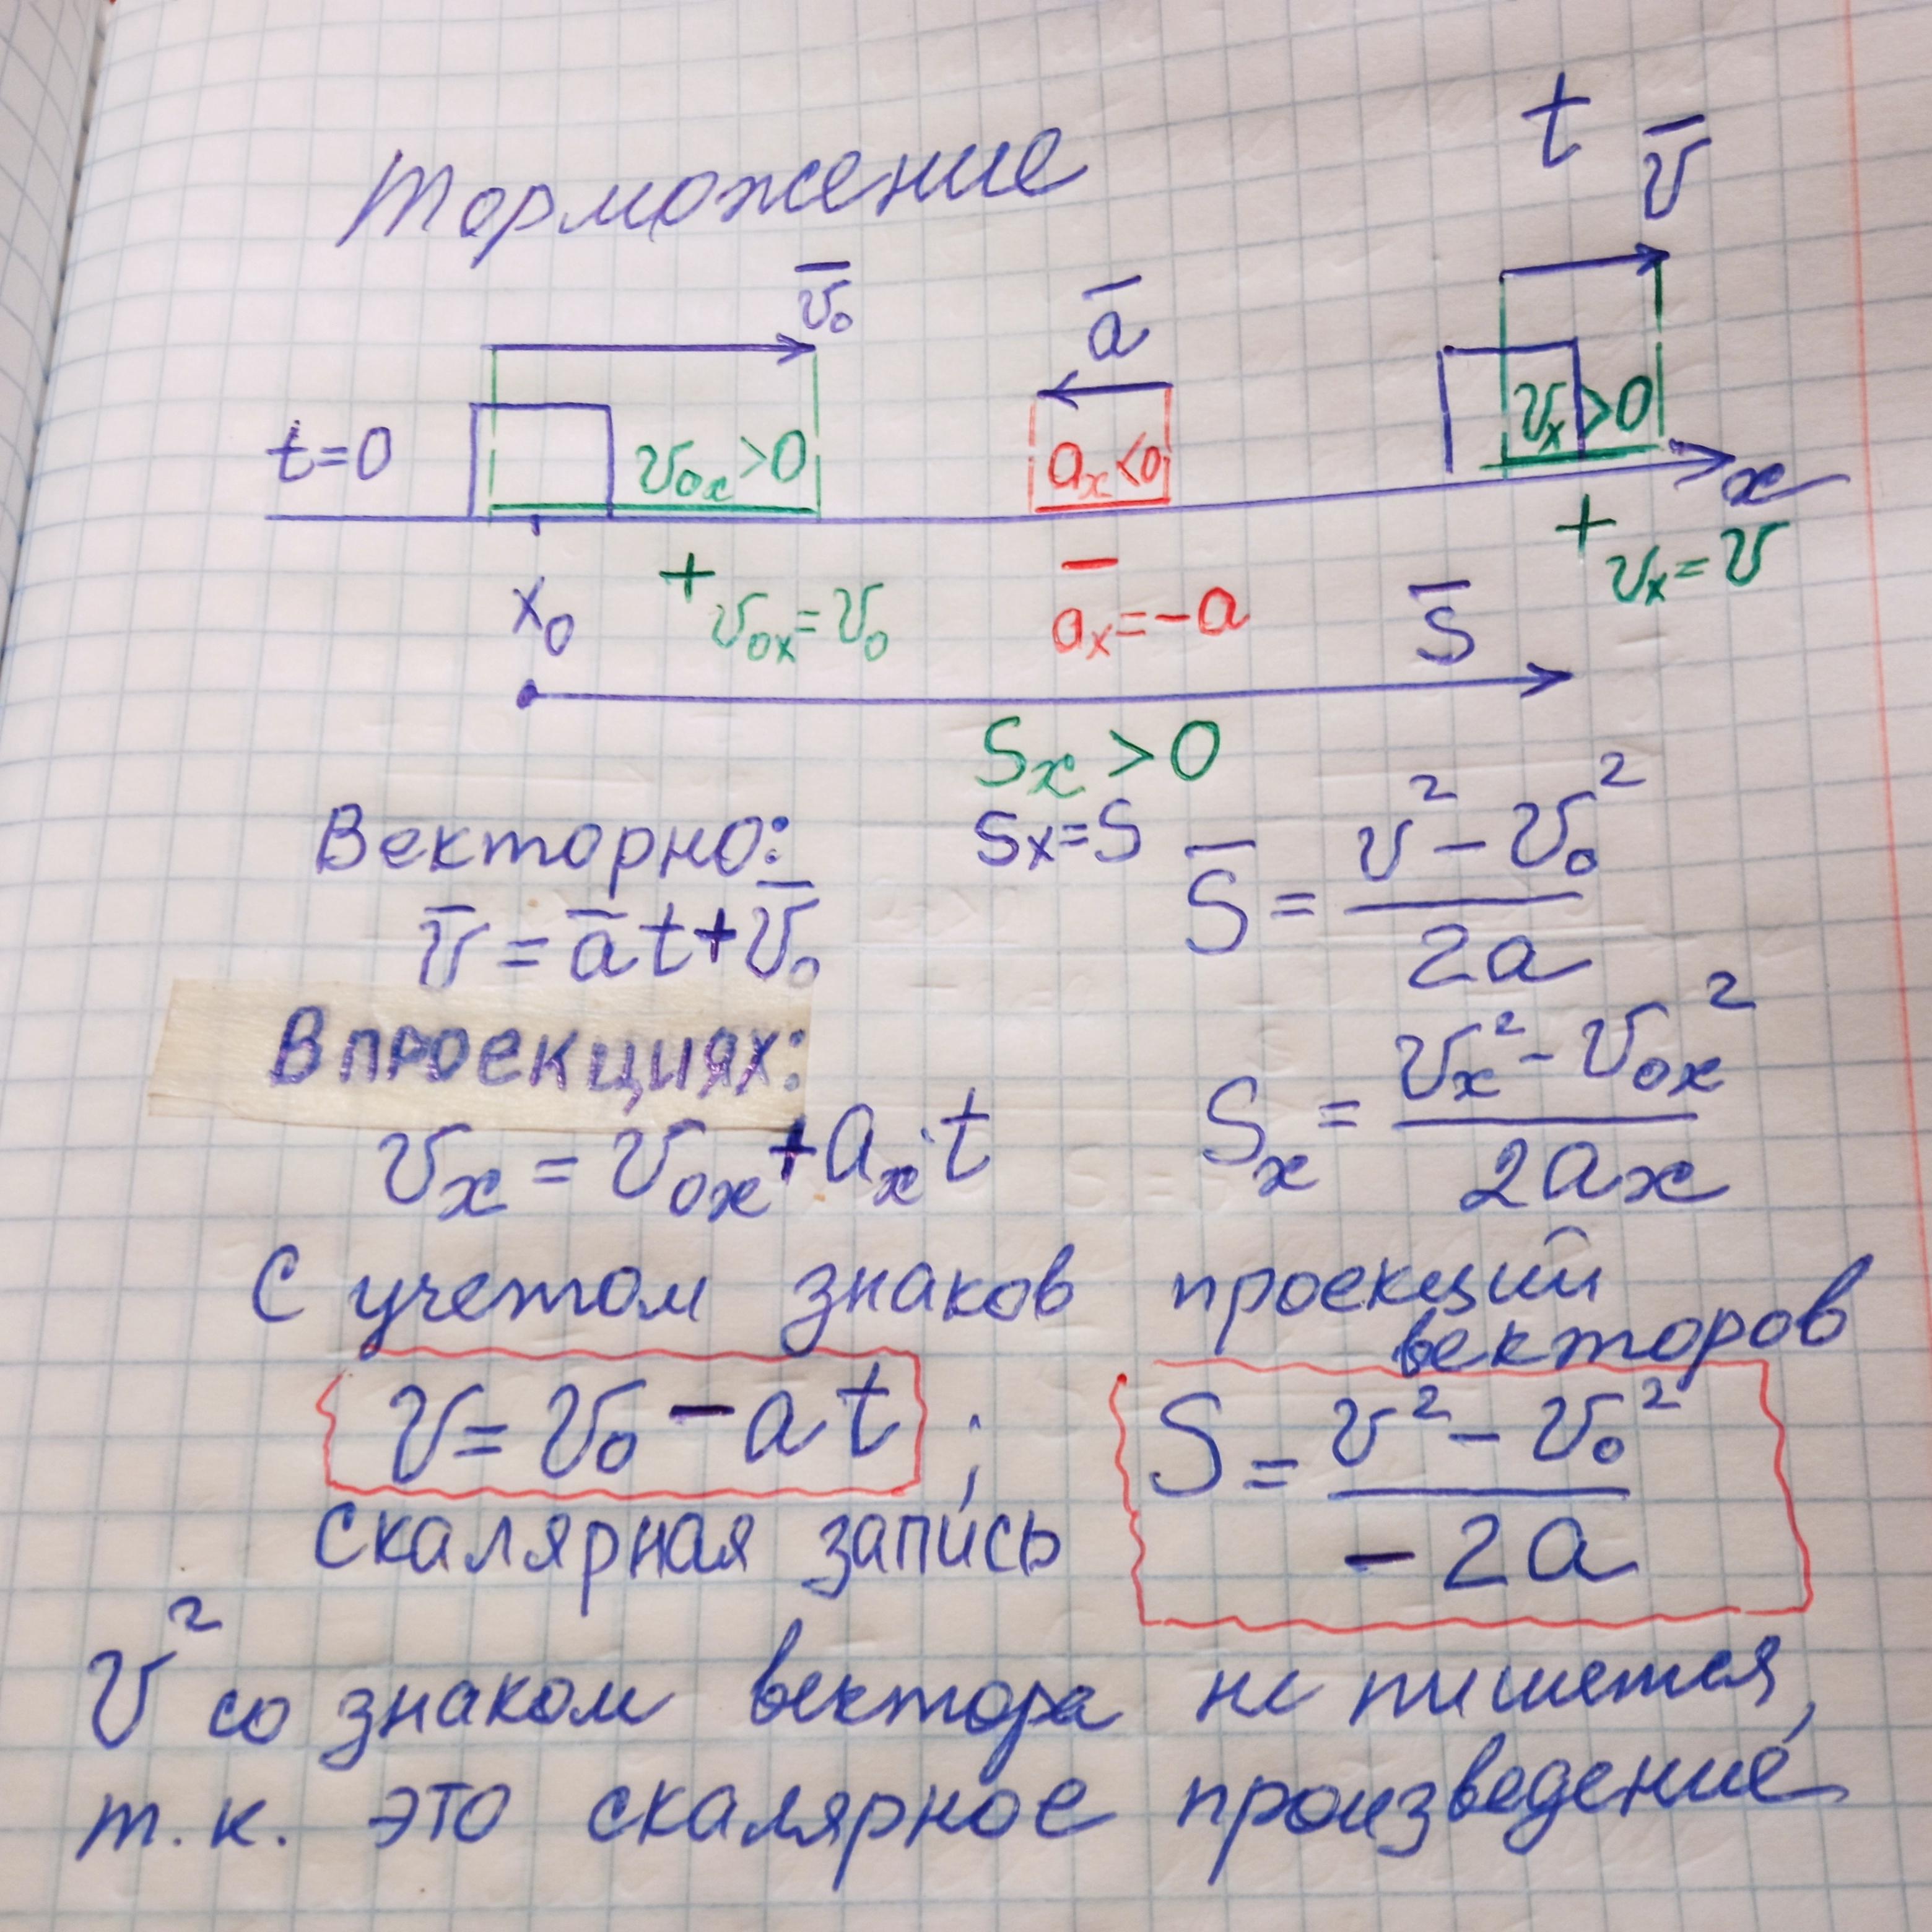 Торможение
t
v̅
v̅₀
a̅
t=0
v₀ₓ>0
aₓ<0
vₓ>0
x
x₀
+
v₀ₓ=v₀
−
aₓ=-a
+
vₓ=v
S̅
Sₓ>0
Sₓ=S
Векторно:
v̅ = a̅t+v̅₀
S̅ = (v² - v₀²)/2a
В проекциях:
vₓ = v₀ₓ+aₓ·t
Sₓ = (vₓ² - v₀ₓ²)/2aₓ
С учетом знаков проекций
векторов
v = v₀ - at ;
S = (v² - v₀²)/-2a
скалярная запись
v² со знаком вектора не пишется,
т.к. это скалярное произведение